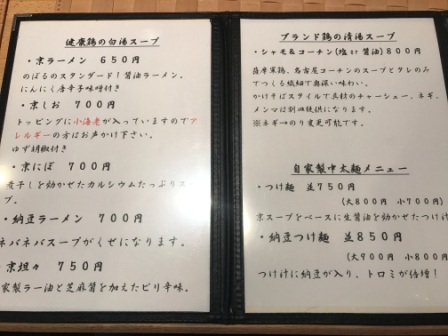 健康鶏の白湯スープ
・京ラーメン 650円
のぼるのスタンダード!醤油ラーメン。
にんにく唐辛子味噌付き
・京しお 700円
トッピングに小海老が入っていますのでア
レルギーの方はお声かけ下さい。
ゆず胡椒付き
・京にぼ 700円
煮干しを効かせたカルシウムたっぷりス
プ。
・納豆ラーメン 700円
ネバネバスープがくせになります。
・京担々 750円
家製ラー油と芝麻醤を加えたピリ辛味。
ブランド鶏の清湯スープ
・シャモ&コーチン(塩or醤油)800円
薩摩軍鶏、名古屋コーチンのスープとタレのみ
でつくる繊細で奥深い味わい。
かけそばスタイルで具材のチャーシュー、ネギ、
メンマは別皿提供になります。
※ネギ→のり変更可能です。
自家製中太麺メニュー
・つけ麺 並750円
(大800円 小700円)
京スープをベースに生醤油を効かせたつけ汁
・納豆つけ麺 並850円
(大900円 小800円)
つけ汁に納豆が入り、トロミが倍増!